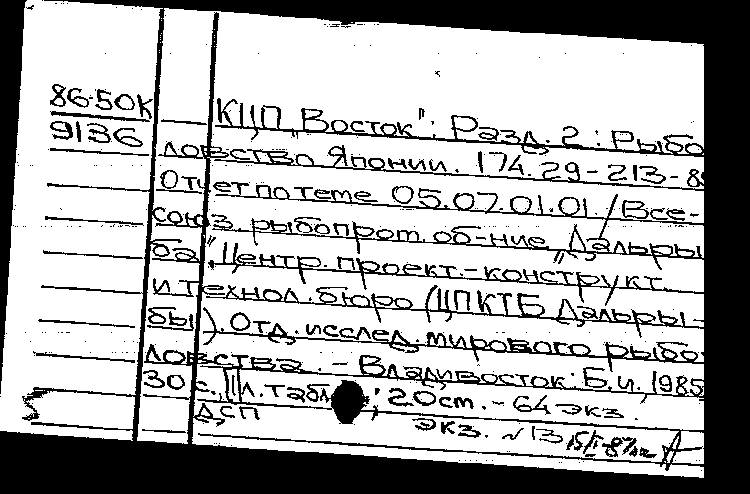 86-50К
9136
КЦП „Восток": Разд. 2: Рыбо
ловство Японии. 174.29-213-8
Отчет по теме 05.07.01.01 / Все-
союз. рыбопром. об-ние „Дальры
ба", Центр. проект.-конструкт.
и технол. бюро (ЦПКТБ Дальры-
бы). Отд. исслед. мирового рыбо
ловства. – Владивосток: Б.и., 1985
30 с., 11 л. табл.; 20 см. – 64 экз.
ДСП экз. №13